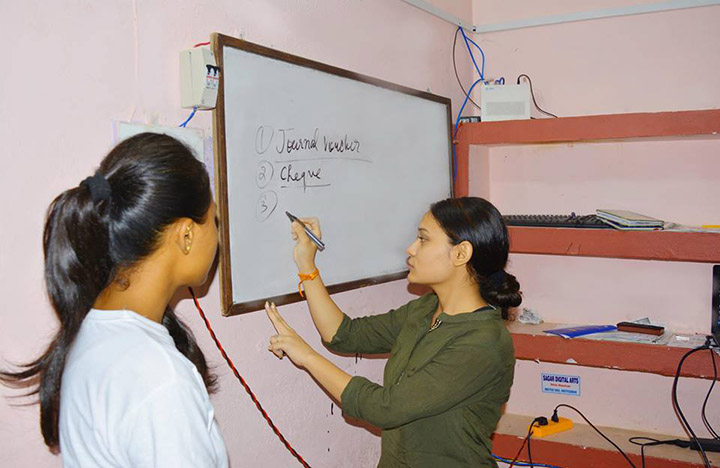 ① Journal Voucher
② Cheque
③
SAGAR DIGITAL ARTS